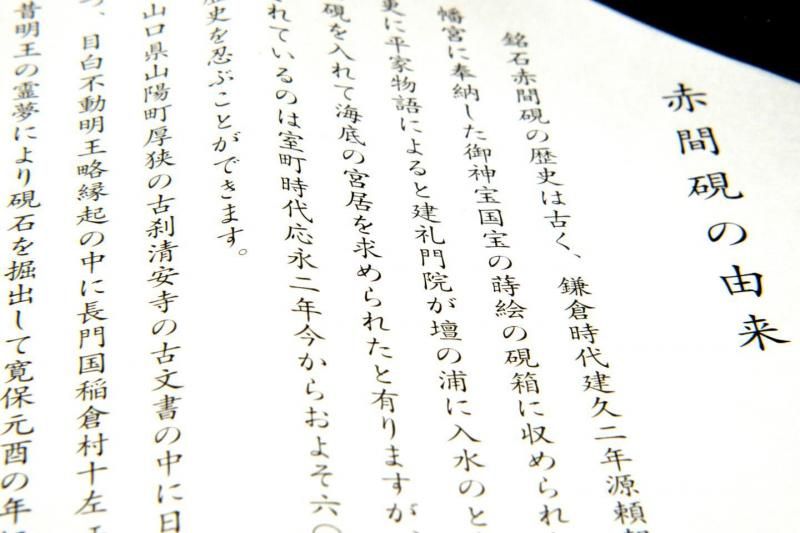 赤間硯の由来
銘石赤間硯の歴史は古く、鎌倉時代建久二年源頼
幡宮に奉納した御神宝国宝の蒔絵の硯箱に収められ
更に平家物語によると建礼門院が壇の浦に入水のと
硯を入れて海底の宮居を求められたと有りますが、
れているのは室町時代応永二年今からおよそ六〇
歴史を忍ぶことができます。
山口県山陽町厚狭の古刹清安寺の古文書の中に日
、目白不動明王略縁起の中に長門国稲倉村十左
昔明王の霊夢により硯石を掘出して寛保元酉の年